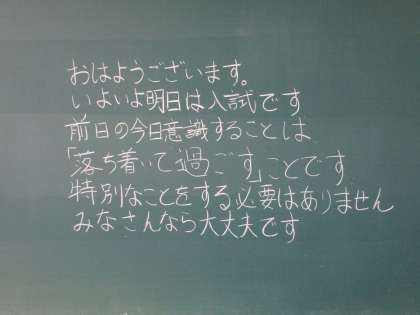 おはようございます。
いよいよ明日は入試です
前日の今日意識することは
「落ち着いて過ごす」ことです
特別なことをする必要はありません
みなさんなら大丈夫です